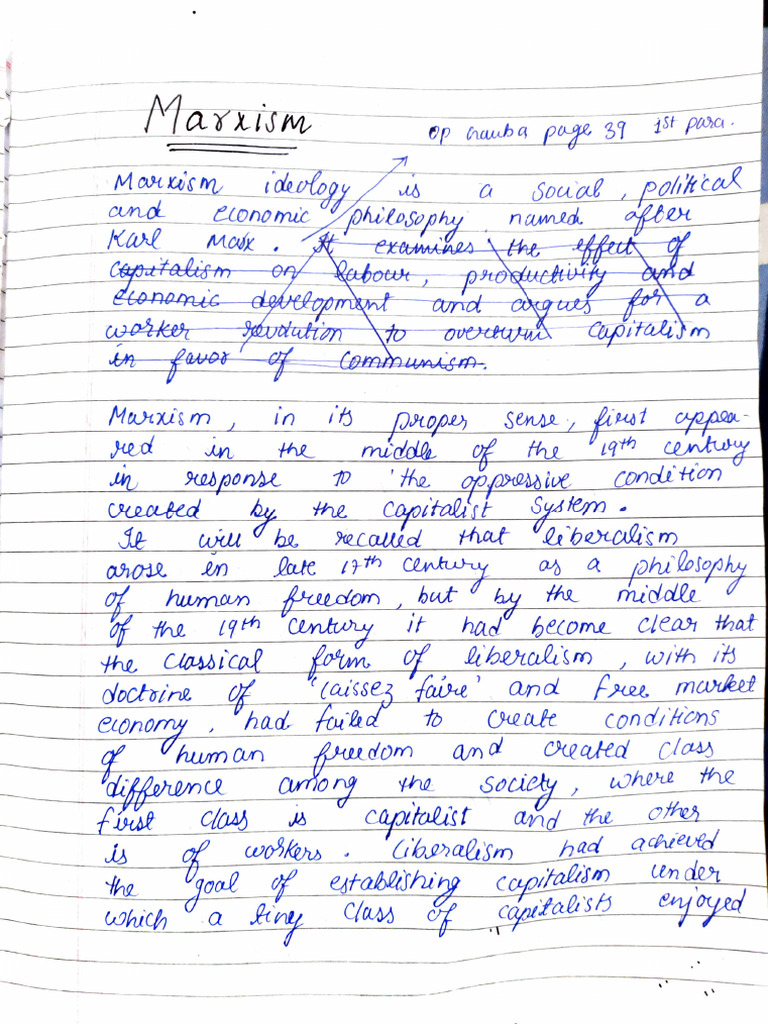 Marxism
op Gauba page 39 1st para.
Marxism ideology is a social, political
and economic philosophy named after
Karl Marx. It examines the effect of
capitalism on labour, productivity and
economic development and argues for a
worker revolution to overturn capitalism
in favor of communism.
Marxism, in its proper sense, first appea-
red in the middle of the 19th century
in response to the oppressive condition
created by the capitalist system.
It will be recalled that liberalism
arose in late 17th century as a philosophy
of human freedom, but by the middle
of the 19th century it had become clear that
the classical form of liberalism, with its
doctrine of 'laissez faire' and free market
economy, had failed to create conditions
of human freedom and created class
difference among the society, where the
first class is capitalist and the other
is of workers. Liberalism had achieved
the goal of establishing capitalism under
which a tiny class of capitalists enjoyed